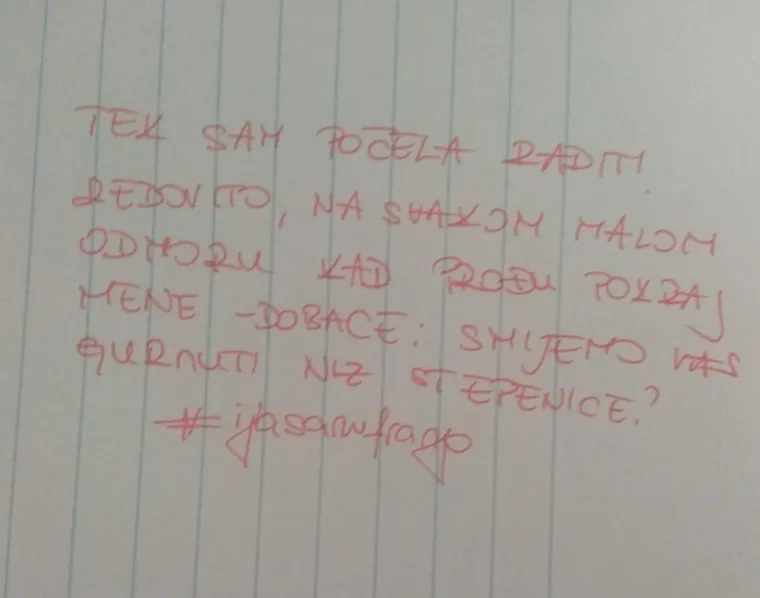 TEK SAM POČELA RADITI.
REDOVITO, NA SVAKOM MALOM
ODMORU KAD PROĐU POKRAJ
MENE - DOBACE: SMIJEMO VAS
GURNUTI NIZ STEPENICE?
#ijasamfragp